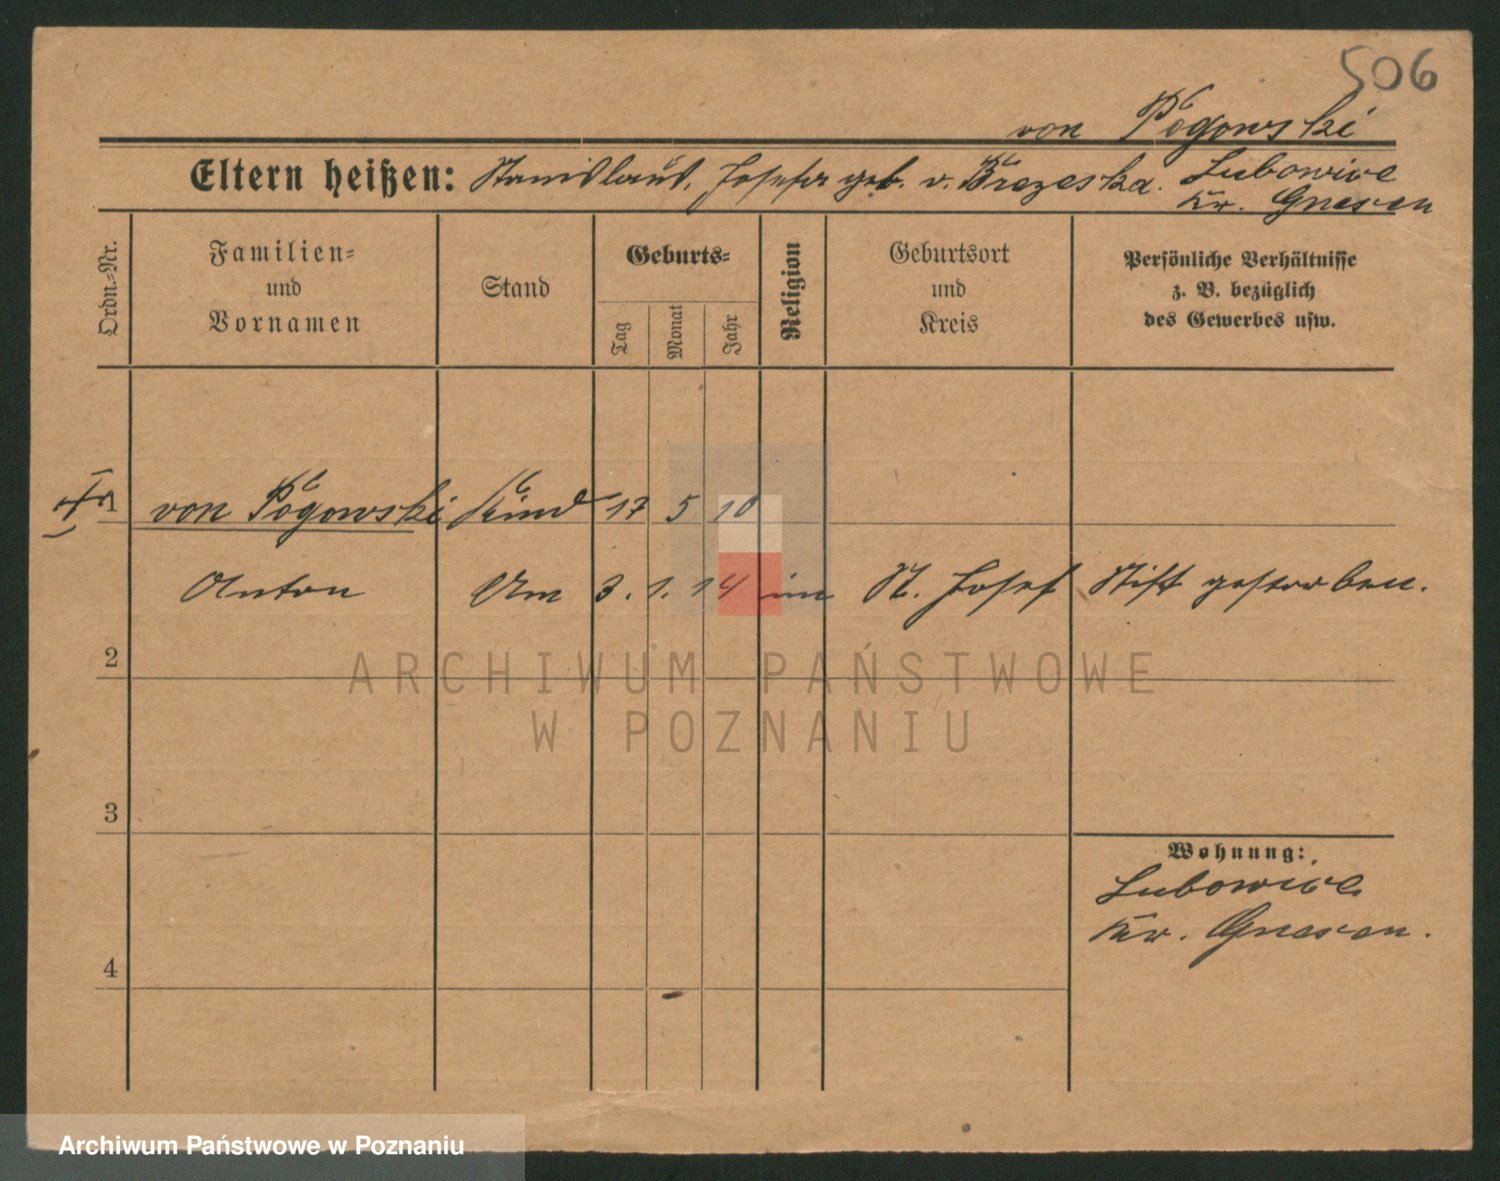 506
von Pogowski
Eltern heißen: Stanislaus, Josefa geb. v. Brzeska. Lubowice
Kr. Gnesen
Ordn.-Nr.
Familien-
und
Vornamen
Stand
Geburts-
Tag
Monat
Jahr
Religion
Geburtsort
und
Kreis
Persönliche Verhältnisse
z. B. bezüglich
des Gewerbes usw.
1 von Pogowski Kind 17 5 10
Anton Am 3. 1. 14 im St. Josef Stift gestorben.
2
ARCHIWUM PAŃSTWOWE
W POZNANIU
3
Wohnung:
Lubowice
Kr. Gnesen.
4
Archiwum Państwowe w Poznaniu